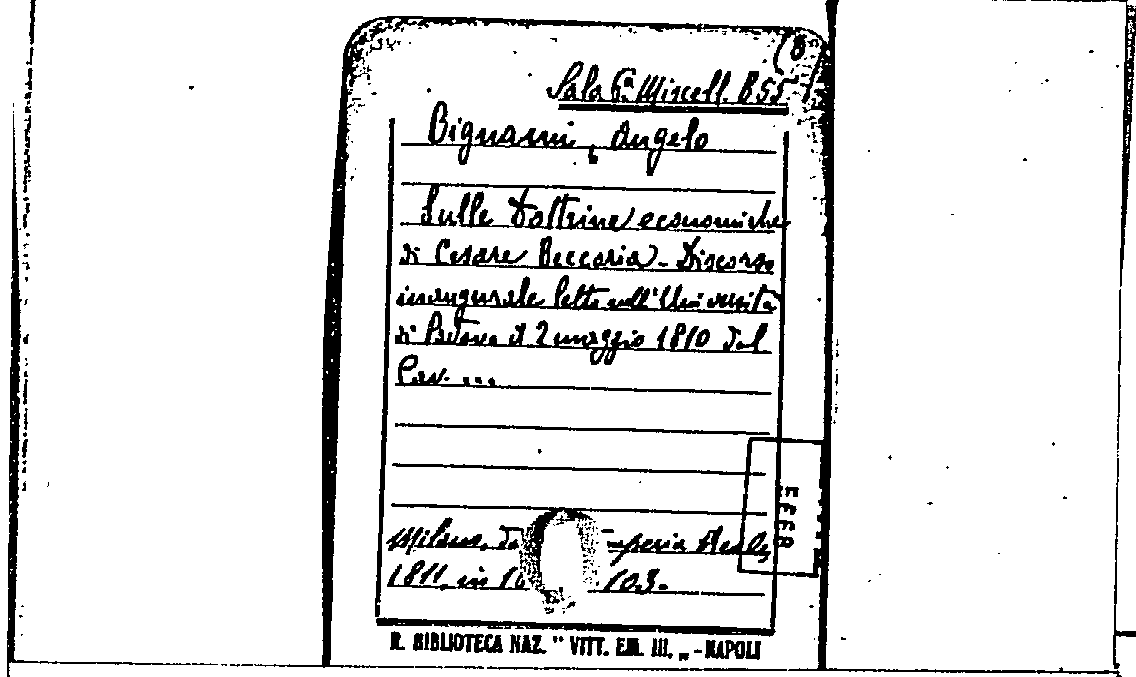 (8
Sala 6ª Miscell. B55
Bignami, Angelo
Sulle Dottrine economiche
di Cesare Beccaria - Discorso
inaugurale letto nell'Università
di Padova il 2 maggio 1810 dal
Cav. ...
Milano, Imperia Reale
1811 in 16 103.
R. BIBLIOTECA NAZ. " VITT. EM. III. „ - NAPOLI